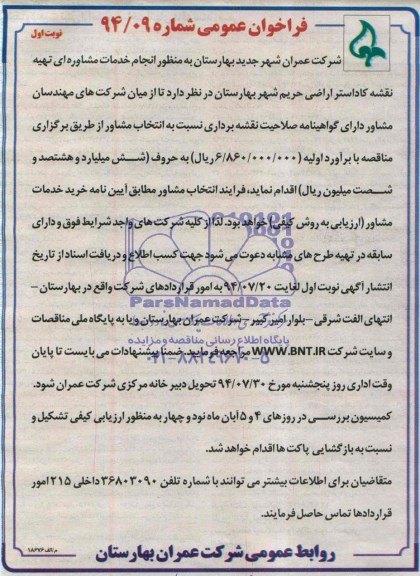 فراخوان عمومی شماره ۹۴/۰۹
نوبت اول
شرکت عمران شهر جدید بهارستان به منظور انجام خدمات مشاوره ای تهیه
نقشه کاداستر اراضی حریم شهر بهارستان در نظر دارد تا از میان شرکت های مهندسان
مشاور دارای گواهینامه صلاحیت نقشه برداری نسبت به انتخاب مشاور از طریق برگزاری
مناقصه با برآورد اولیه (۶/۸۶۰/۰۰۰/۰۰۰ریال) به حروف (شش میلیارد و هشتصد و
شصت میلیون ریال) اقدام نماید، فرایند انتخاب مشاور مطابق آیین نامه خرید خدمات
مشاور (ارزیابی به روش کیفی) خواهد بود. لذا از کلیه شرکت های واجد شرایط فوق و دارای
سابقه در تهیه طرح های مشابه دعوت می شود جهت کسب اطلاع و دریافت اسناد از تاریخ
انتشار آگهی نوبت اول لغایت ۹۴/۰۷/۲۰ به امور قراردادهای شرکت واقع در بهارستان –
انتهای الفت شرقی – بلوار امیرکبیر – شرکت عمران بهارستان و یا به پایگاه ملی مناقصات
و سایت شرکت WWW.BNT.IR مراجعه فرمایید. ضمنا پیشنهادات می بایست تا پایان
وقت اداری روز پنجشنبه مورخ ۹۴/۰۷/۳۰ تحویل دبیر خانه مرکزی شرکت عمران شود.
کمیسیون بررسی در روزهای ۴ و ۵ آبان ماه نود و چهار به منظور ارزیابی کیفی تشکیل و
نسبت به بازگشایی پاکت ها اقدام خواهد شد.
متقاضیان برای اطلاعات بیشتر می توانند با شماره تلفن ۳۶۸۰۳۰۹۰ داخلی ۲۱۵ امور
قراردادها تماس حاصل فرمایند.
روابط عمومی شرکت عمران بهارستان
م/الف ۱۸۶۷۶
ParsNamadData
پایگاه اطلاع رسانی مناقصه و مزایده
۰۲۱-۸۸۳۴۹۶۷۰-۵